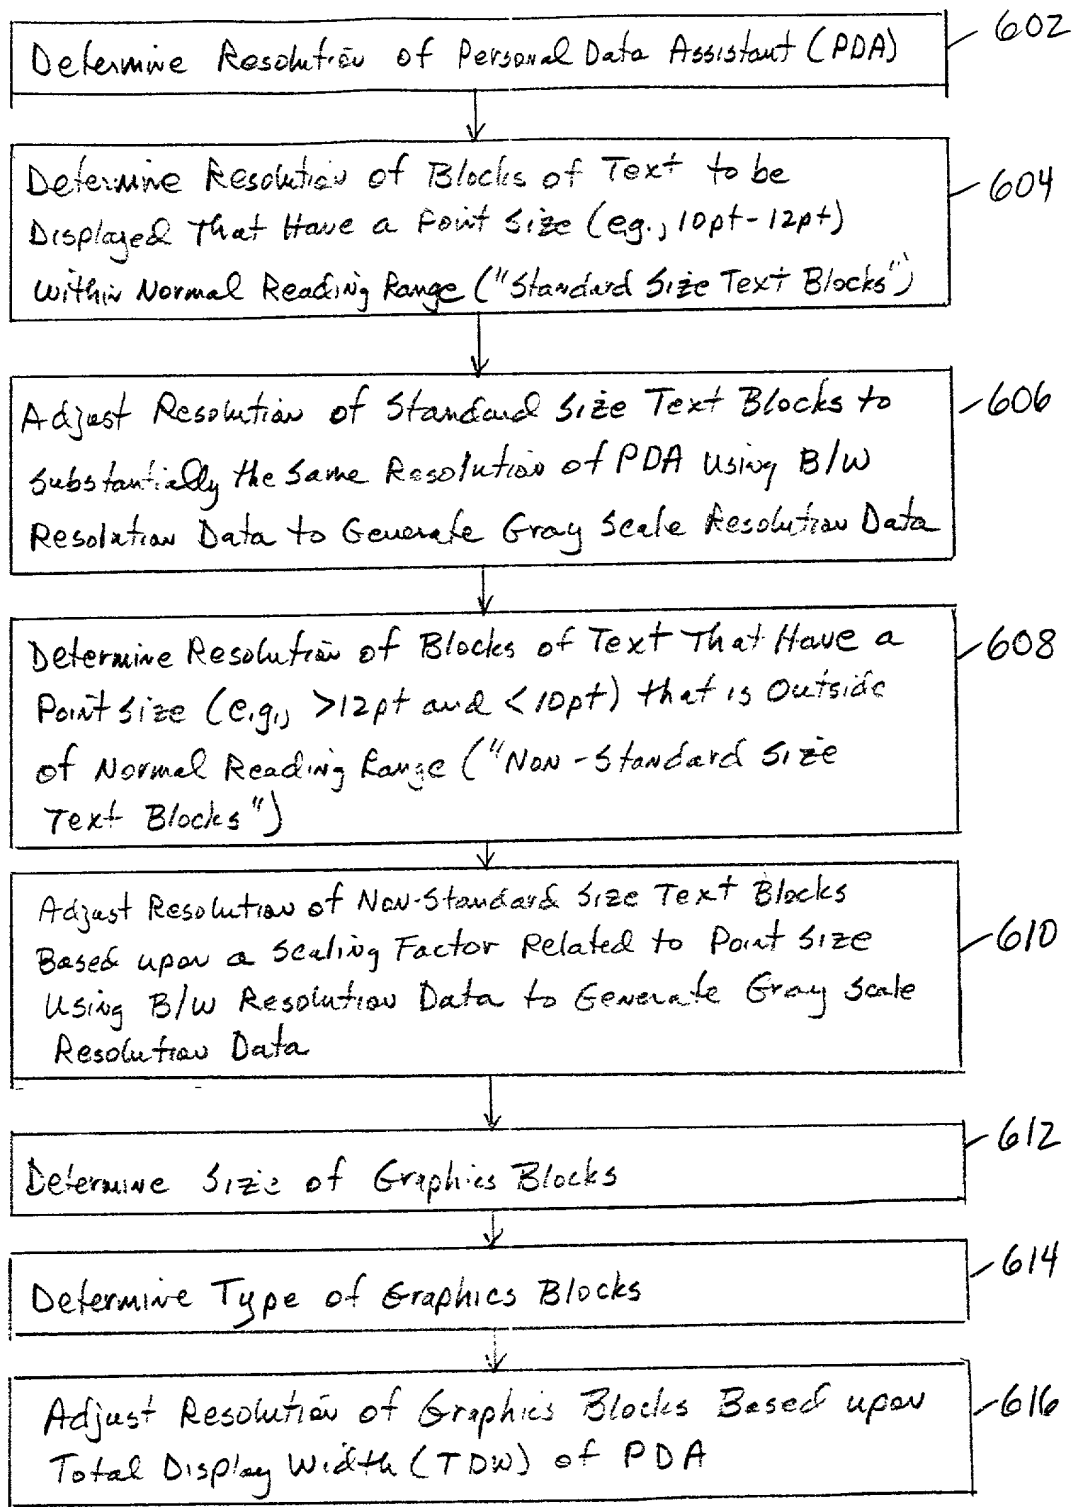 Determine Resolution of Personal Data Assistant (PDA)
602
Determine Resolution of Blocks of Text to be
Displayed That Have a Point Size (eg., 10pt-12pt)
Within Normal Reading Range ("Standard Size Text Blocks")
604
Adjust Resolution of Standard Size Text Blocks to
Substantially the Same Resolution of PDA Using B/W
Resolution Data to Generate Gray Scale Resolution Data
606
Determine Resolution of Blocks of Text That Have a
Point Size (e.g., >12pt and <10pt) that is Outside
of Normal Reading Range ("Non-Standard Size
Text Blocks")
608
Adjust Resolution of Non-Standard Size Text Blocks
Based upon a Scaling Factor Related to Point Size
Using B/W Resolution Data to Generate Gray Scale
Resolution Data
610
Determine Size of Graphics Blocks
612
Determine Type of Graphics Blocks
614
Adjust Resolution of Graphics Blocks Based upon
Total Display Width (TDW) of PDA
616